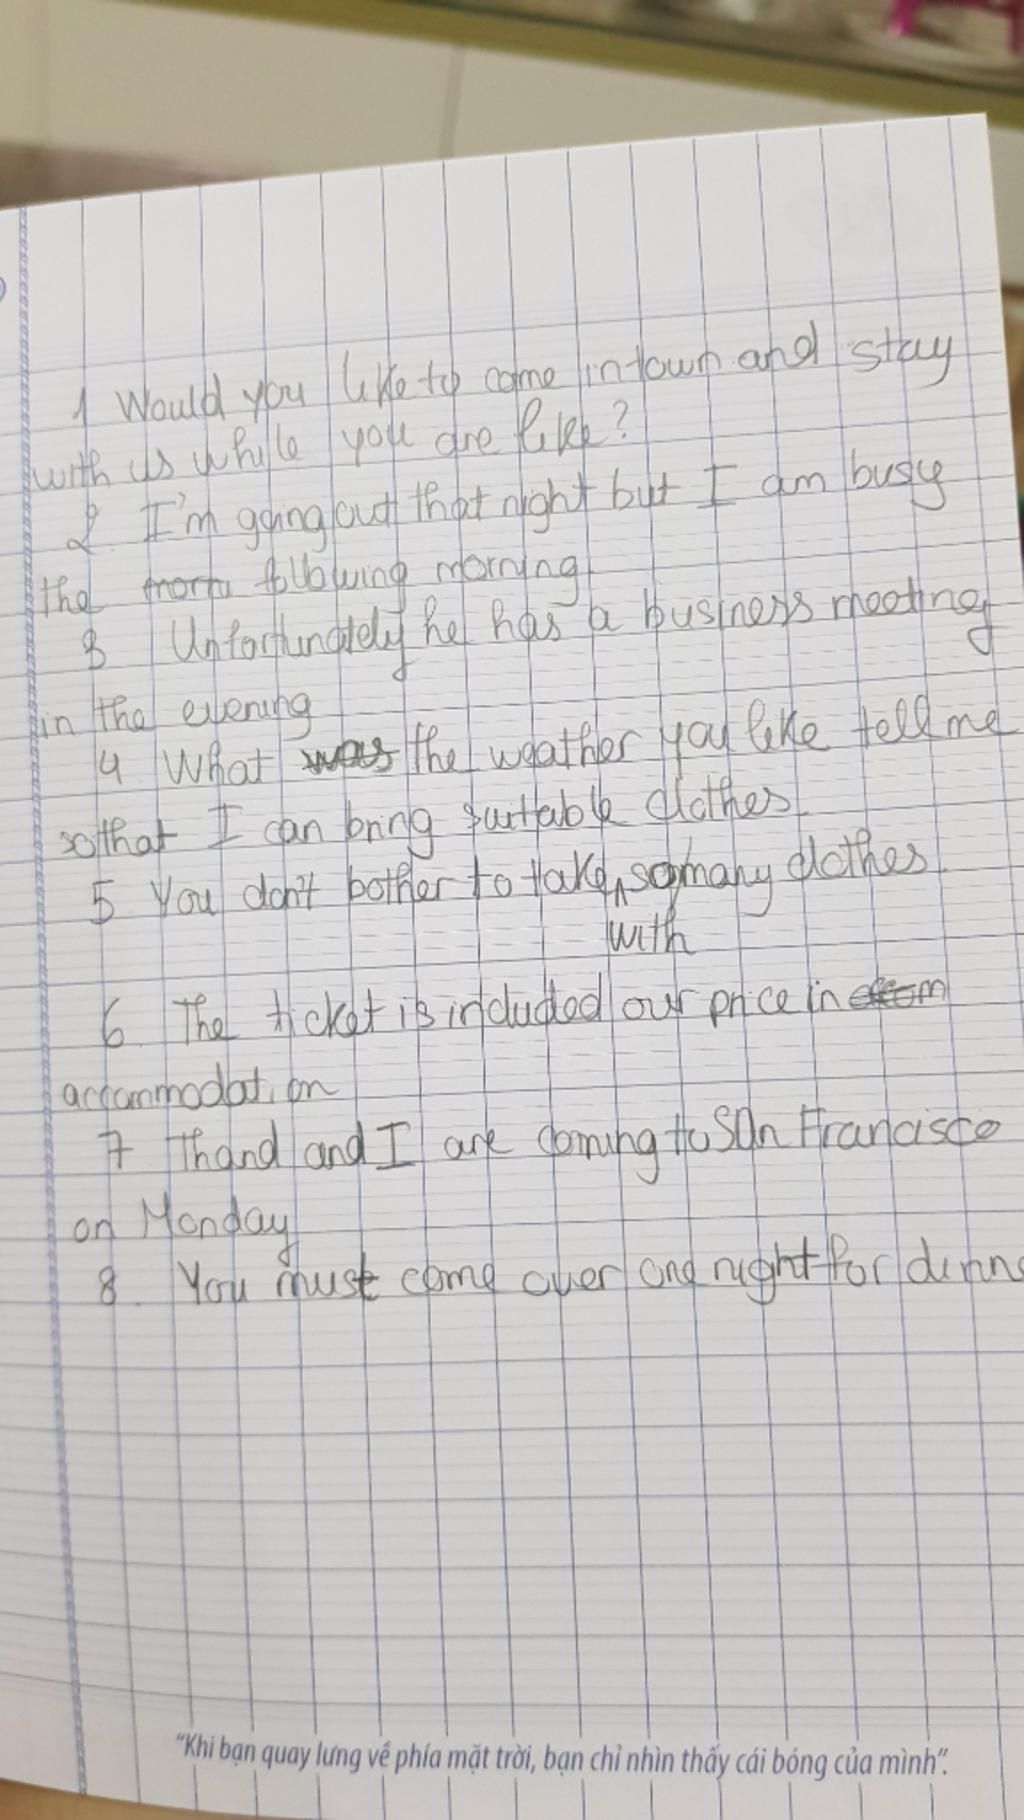 1 Would you like to come in town and stay
with us while you are like?
2. I'm going out that night but I am busy
the following morning
3 Unfortunately he has a business meeting
in the evening
4 What was the weather you like tell me
so that I can bring suitable clothes
5 You don't bother to take so many clothes
with
6 The ticket is included our price in
accommodation
7 Thand and I are coming to San Francisco
on Monday
8 You must come over one night for dinne
"Khi bạn quay lưng về phía mặt trời, bạn chỉ nhìn thấy cái bóng của mình".